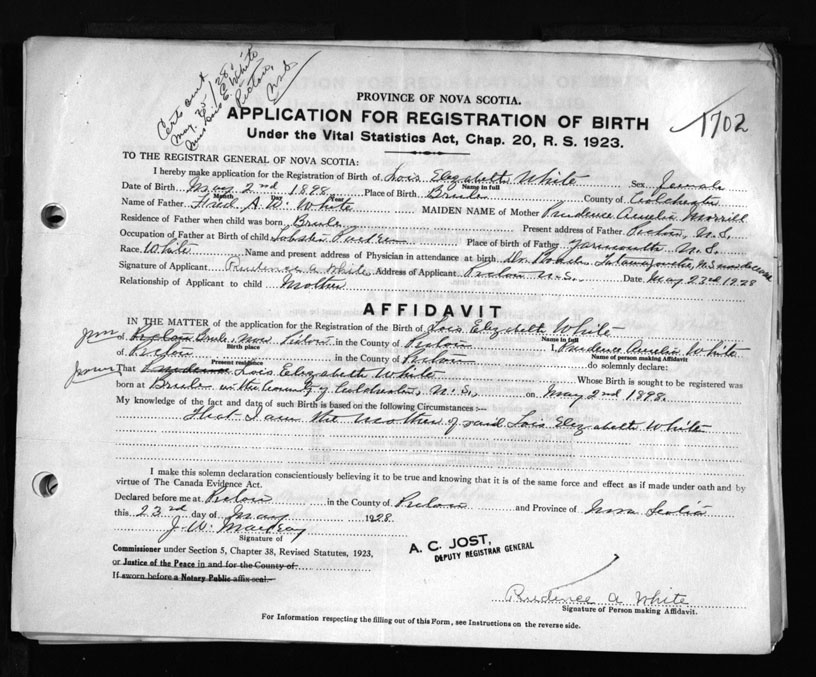 Certs out
May 25/28
Miss Lois E. White
Pictou,
N.S.
1702
PROVINCE OF NOVA SCOTIA.
APPLICATION FOR REGISTRATION OF BIRTH
Under the Vital Statistics Act, Chap. 20, R. S. 1923.
TO THE REGISTRAR GENERAL OF NOVA SCOTIA:
I hereby make application for the Registration of Birth of Lois Elizabeth White Sex female
Name in full
Date of Birth May 2nd 1898 Place of Birth Brule County of Colchester
Month Day Year
Name of Father Fred A. W. White MAIDEN NAME of Mother Prudence Amelia Morrill
Residence of Father when child was born Brule Present address of Father Pictou, N.S.
Occupation of Father at Birth of child Lobster Packer Place of birth of Father Yarmouth N.S.
Race White Name and present address of Physician in attendance at birth Dr. Tatamagouche, N.S. now deceased
Signature of Applicant Prudence A White Address of Applicant Pictou N.S. Date May 23rd 1928
Relationship of Applicant to child Mother
AFFIDAVIT
IN THE MATTER of the application for the Registration of the Birth of Lois Elizabeth White
Name in full
of near Pictou in the County of Pictou I, Prudence Amelia White
Birth place Name of person making Affidavit
of Pictou in the County of Pictou do solemnly declare:
Present residence
That Lois Elizabeth White Whose Birth is sought to be registered was
born at Brule in the County of Colchester, N.S., on May 2nd 1898.
My knowledge of the fact and date of such Birth is based on the following Circumstances:—
That I am the Mother of said Lois Elizabeth White
I make this solemn declaration conscientiously believing it to be true and knowing that it is of the same force and effect as if made under oath and by
virtue of The Canada Evidence Act.
Declared before me at Pictou in the County of Pictou and Province of Nova Scotia
this 23rd day of May 1928.
J. W. Mackay
Signature of
A. C. JOST,
DEPUTY REGISTRAR GENERAL
Commissioner under Section 5, Chapter 38, Revised Statutes, 1923,
or Justice of the Peace in and for the County of
If sworn before a Notary Public affix seal.
Prudence A White
Signature of Person making Affidavit.
For Information respecting the filling out of this Form, see Instructions on the reverse side.